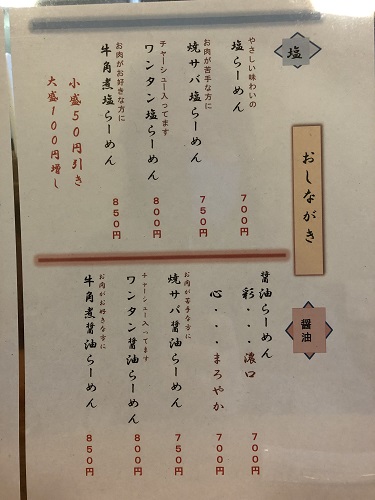 おしながき
塩
やさしい味わいの
塩らーめん
700円
お肉が苦手な方に
焼サバ塩らーめん
750円
チャーシュー入ってます
ワンタン塩らーめん
800円
お肉がお好きな方に
牛角煮塩らーめん
850円
小盛50円引き
大盛100円増し
醤油
醤油らーめん
彩・・・濃口
700円
心・・・まろやか
700円
お肉が苦手な方に
焼サバ醤油らーめん
750円
チャーシュー入ってます
ワンタン醤油らーめん
800円
お肉がお好きな方に
牛角煮醤油らーめん
850円